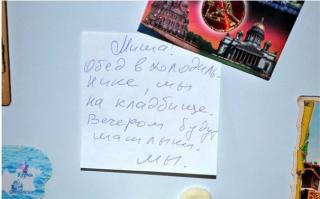 Миша!
обед в холодиль-
нике, мы
на кладбище.
Вечером будут
шашлыки.
мы.